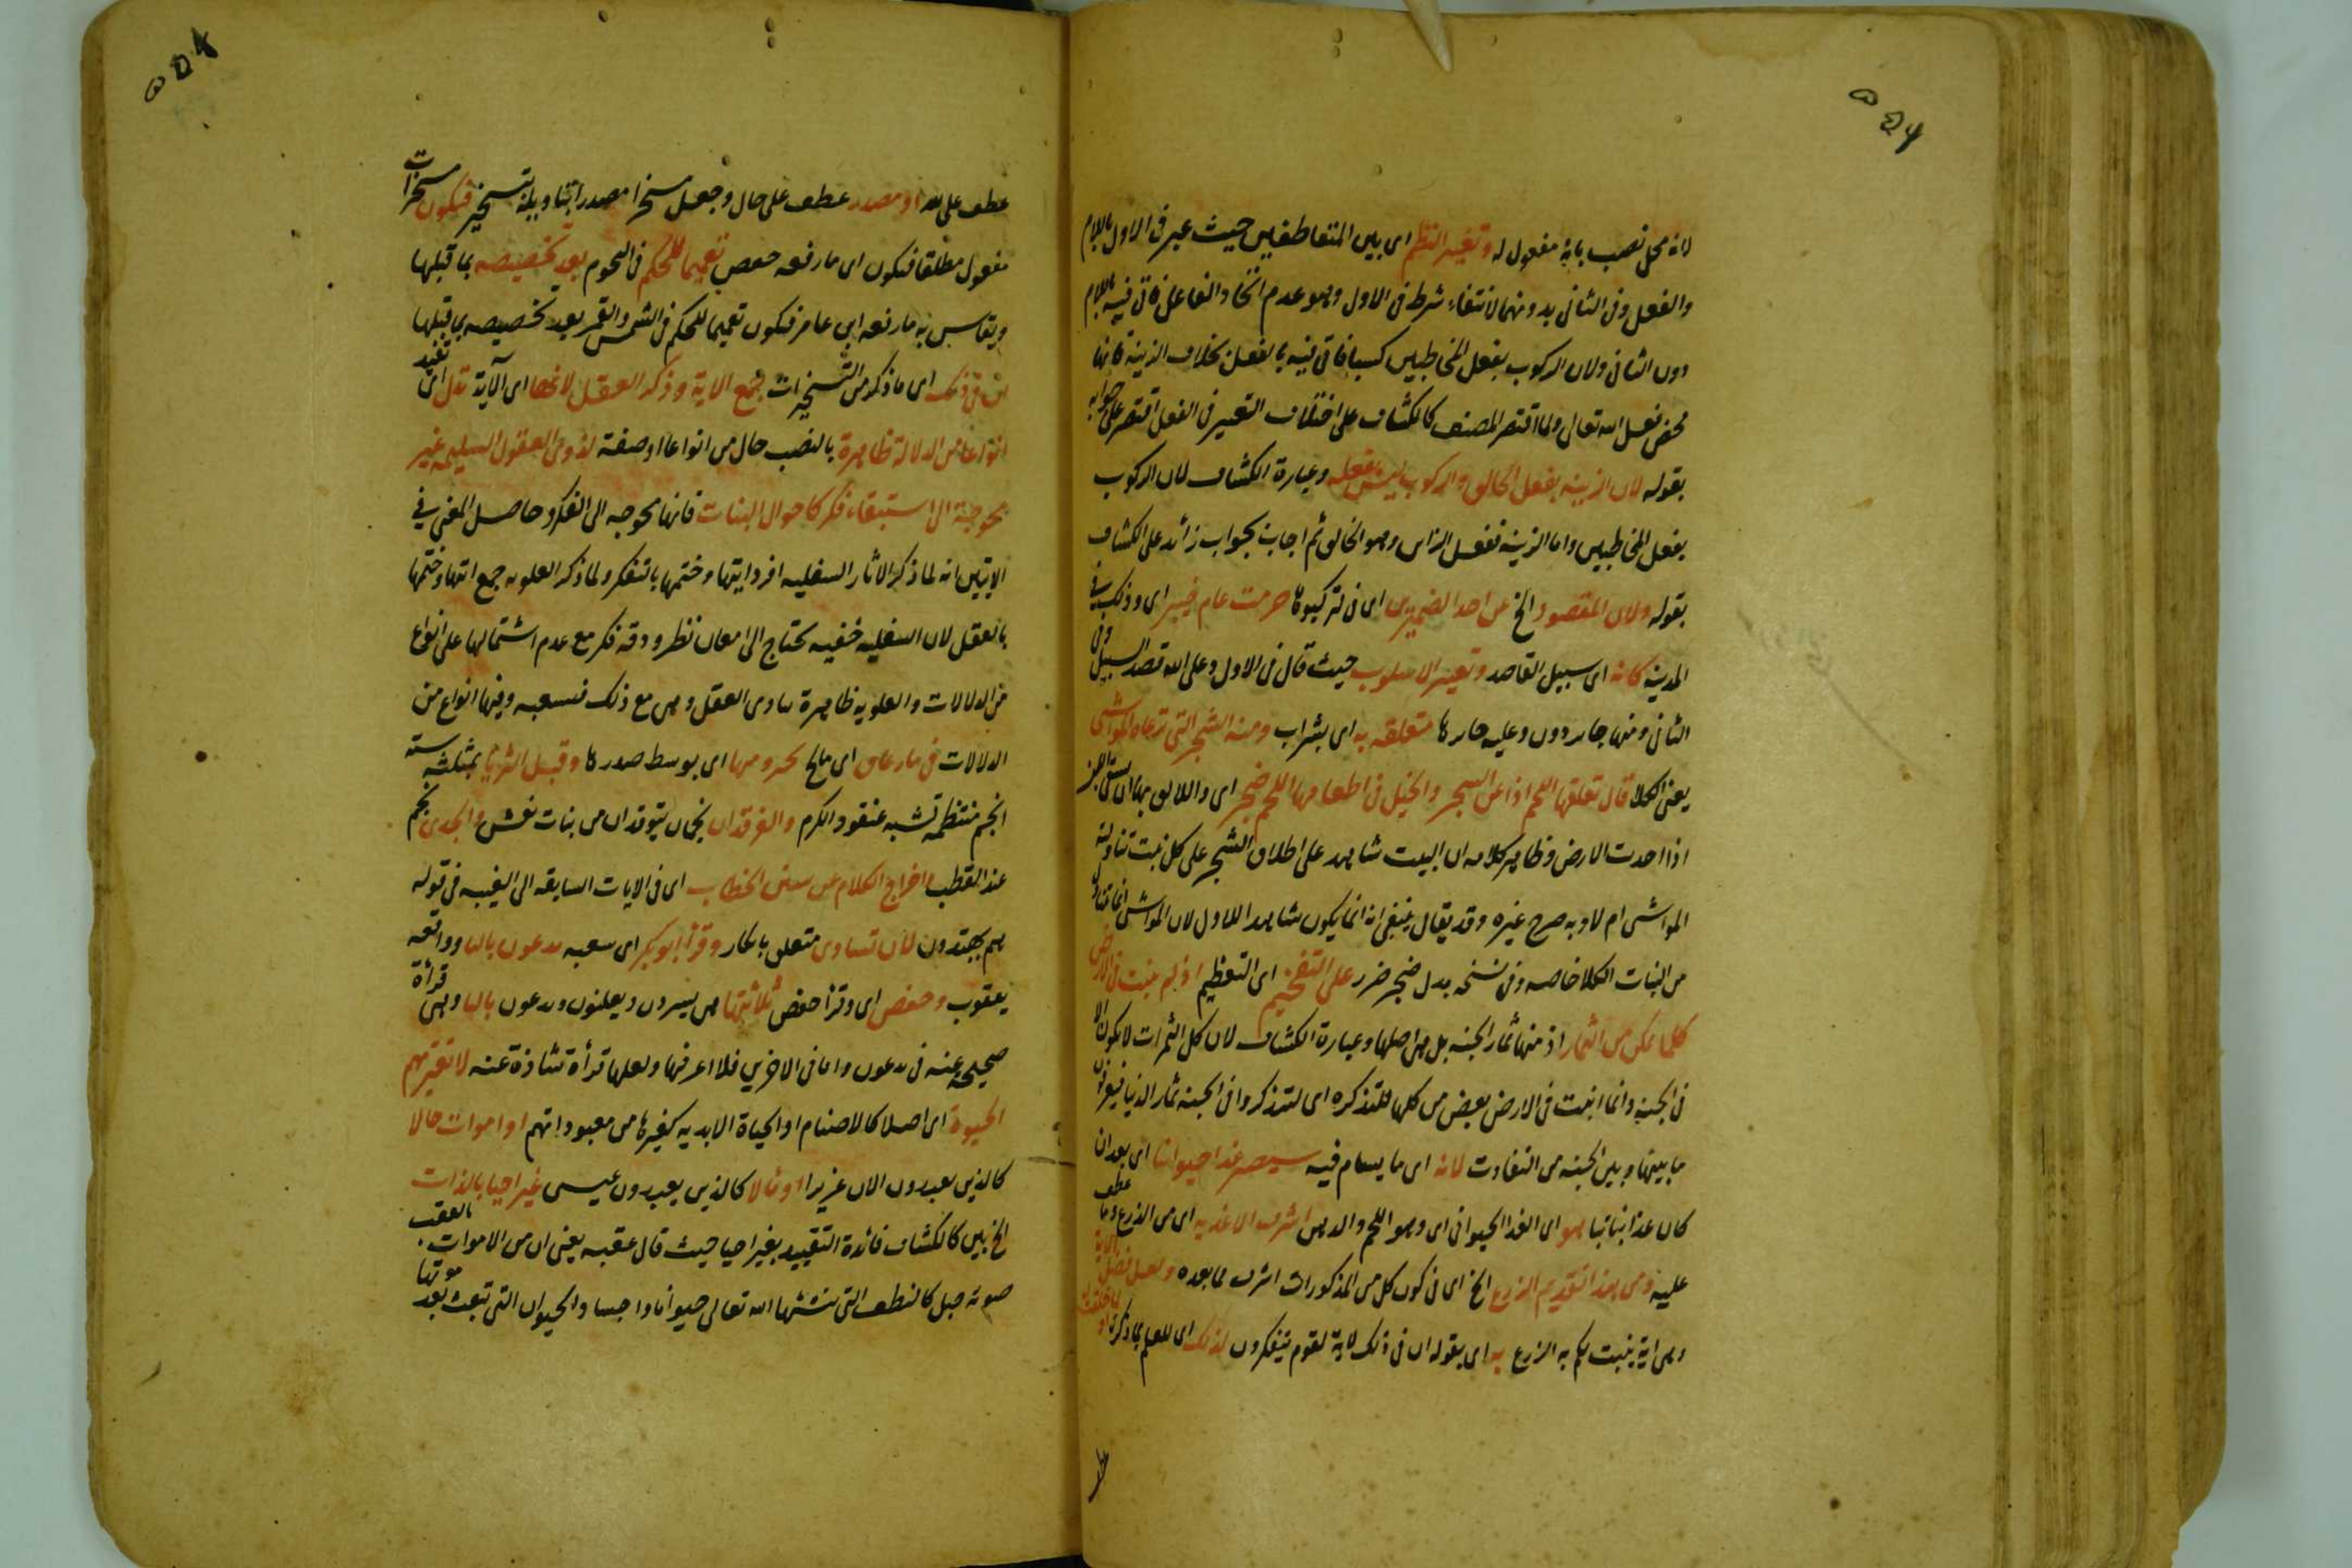 لانه محل نصب بانه مفعول له وتغيير النظم اى بين المتعاطفين حيث عبر فى الاول باللام
والفعل وفى الثانى بدونهما لانتفاء شرط فى الاول وهو عدم اتحاد الفاعل فاتى فيه باللام
دون الثانى ولان الركوب بفعل المخاطبين كسبا فاتى فيه بالفعل بخلاف الزينة فانها
محض فعل الله تعالى ولما اقتصر المصنف كالكشاف على اختلاف التعبير فى الفعل اقتصر على جوابه
بقوله لان الزينة بفعل الخالق والركوب ليس بفعله وعبارة الكشاف لان الركوب
بفعل المخاطبين واما الزينة ففعل الزاين وهو الخالق ثم اجاب بجواب زائد على الكشاف
بقوله ولان المقصود الخ عن احد الضميرين اى فى لتركبوها حرمت عام خيبر اى وذلك
المدينة كانه اى سبيل القاصد وتغيير الاسلوب حيث قال فى الاول وعلى الله قصد السبيل وفى
الثانى ومنها جاير دون وعليه جايرها متعلقه به اى بشراب ومنه الشجر التى ترعاه المواشى
يعنى الكلا قال تعلفها اللحم اذا عز الشجر والخيل فى اطعامها اللحم ضجر اى واللايق بها ان تسقى اللبن
اذا اجدبت الارض وظاهر كلامه ان البيت شاهد على اطلاق الشجر على كل نبت تناولته
المواشى ام لا وبه صرح غيره وقد يقال ينبغى انه انما يكون شاهد الاول لان المواشى انما تتناول
من النبات الكلا خاصه وفى نسخه بدل ضجر ضرر على التفخيم اى التعظيم اذ لم ينبت فى الارض
كلما يمكن من الثمار اذ منها ثمار الجنة بل هى اصلها وعبارة الكشاف لان كل الثمرات لا يكون الا
فى الجنة وانما انبت فى الارض بعض من كلها للتذكره اى لتذكروا فى الجنة ثمار الدنيا فيعرفون
ما بينها وبين الجنة من التفاوت لانه اى ما يسام فيه سيصير غذا حيوانيا اى بعد ان
كان غذا نباتيا وهو اى الغذا الحيوانى اى وهو اللحم والدهن اشرف الاغذيه اى من الزرع وما عطف
عليه ومن هذا تقديم الزرع الخ اى فى كون كل من المذكورات اشرف مما بعده ولعل فصل الاية
وهى اية ينبت لكم به الزرع به اى بقوله ان فى ذلك لاية لقوم يتفكرون لذلك اى للعلم بما ذكرنا
عطف على او مصدر عطف على حال وجعل مسخرا مصدر بتاويله بتسخير فيكون مسخرات
مفعول مطلقا فتكون اى ما رفعه حفص تعميما للحكم فى النجوم بعد تخصيصه بما قبلها
ويقاس به ما رفعه ابن عامر فتكون تعميما للحكم فى الشمس والقمر بعد تخصيصه بما قبلها
ان فى ذلك اى ما ذكر من التسخيرات جمع الاية وذكر العقل لانها اى الآية تدل اى تفيد
انواعا من الدلالة ظاهرة بالنصب حال من انواعا او صفة لذوى العقول السليمه غير
محوجة الى استيفاء فكر كاحوال النبات فانها محوجه الى الفكر وحاصل المعنى فى
الايتين انه لما ذكر الاثار السفليه افرد ايتها وختمها بالتفكر ولما ذكر العلويه جمع ايتها وختمها
بالعقل لان السفليه خفيه تحتاج الى امعان نظر ودقه فكر مع عدم اشتمالها على انواع
من الدلالات والعلويه ظاهرة تساوى العقل وهى مع ذلك متسعبه وفيها انواع من
الدلالات فى مار عاق اى مالح بحيزومها اى بوسط صدرها وقبل الثريا بمثلثه ستة
انجم منتظمة تشبه عنقود الكرم والفرقدان نجمان يتوقدان من بنات نعش والجدى نجم
عند القطب واخراج الكلام عن سنن الخطاب اى فى الايات السابقه الى الغيبه فى قوله
هم يهتدون لان تساوى متعلق بانكار وقرأ ابو بكر اى سعبه يدعون باليا ووافقه
يعقوب وحفص اى وقرأ حفص ثلاثتها هى يسرون ويعلنون ويدعون باليا وهى قرأة
صحيحه عنه فى يدعون واما فى الاخريين فلا اعرفها ولعلها قرأة شاذة عنه لا تعتريهم
الحيوة اى اصلا كالاصنام او الحياة الابديه كغيرها من معبوداتهم او اموات حالا
كالذين يعبدون الان عزيرا او مآلا كالذين يعبدون عيسى غير احيا بالذات
الخ بين كالكشاف فائدة التقييد بغير احيا حيث قال عقبه يعنى ان من الاموات ما يعقب
موته حيل كالنطف التى ينشئها الله تعالى حيوانا واجساد الحيوان التى تبعث بعد موتها